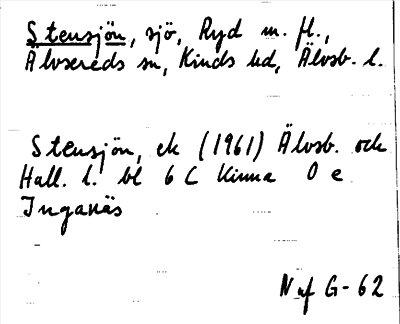 Stensjön, sjö, Ryd m. fl.,
Älvsereds sn, Kinds hd, Älvsb. l.
Stensjön, ek (1961) Älvsb. och
Hall. l. bl 6 C Kinna 0 e
Inganäs
N af G-62